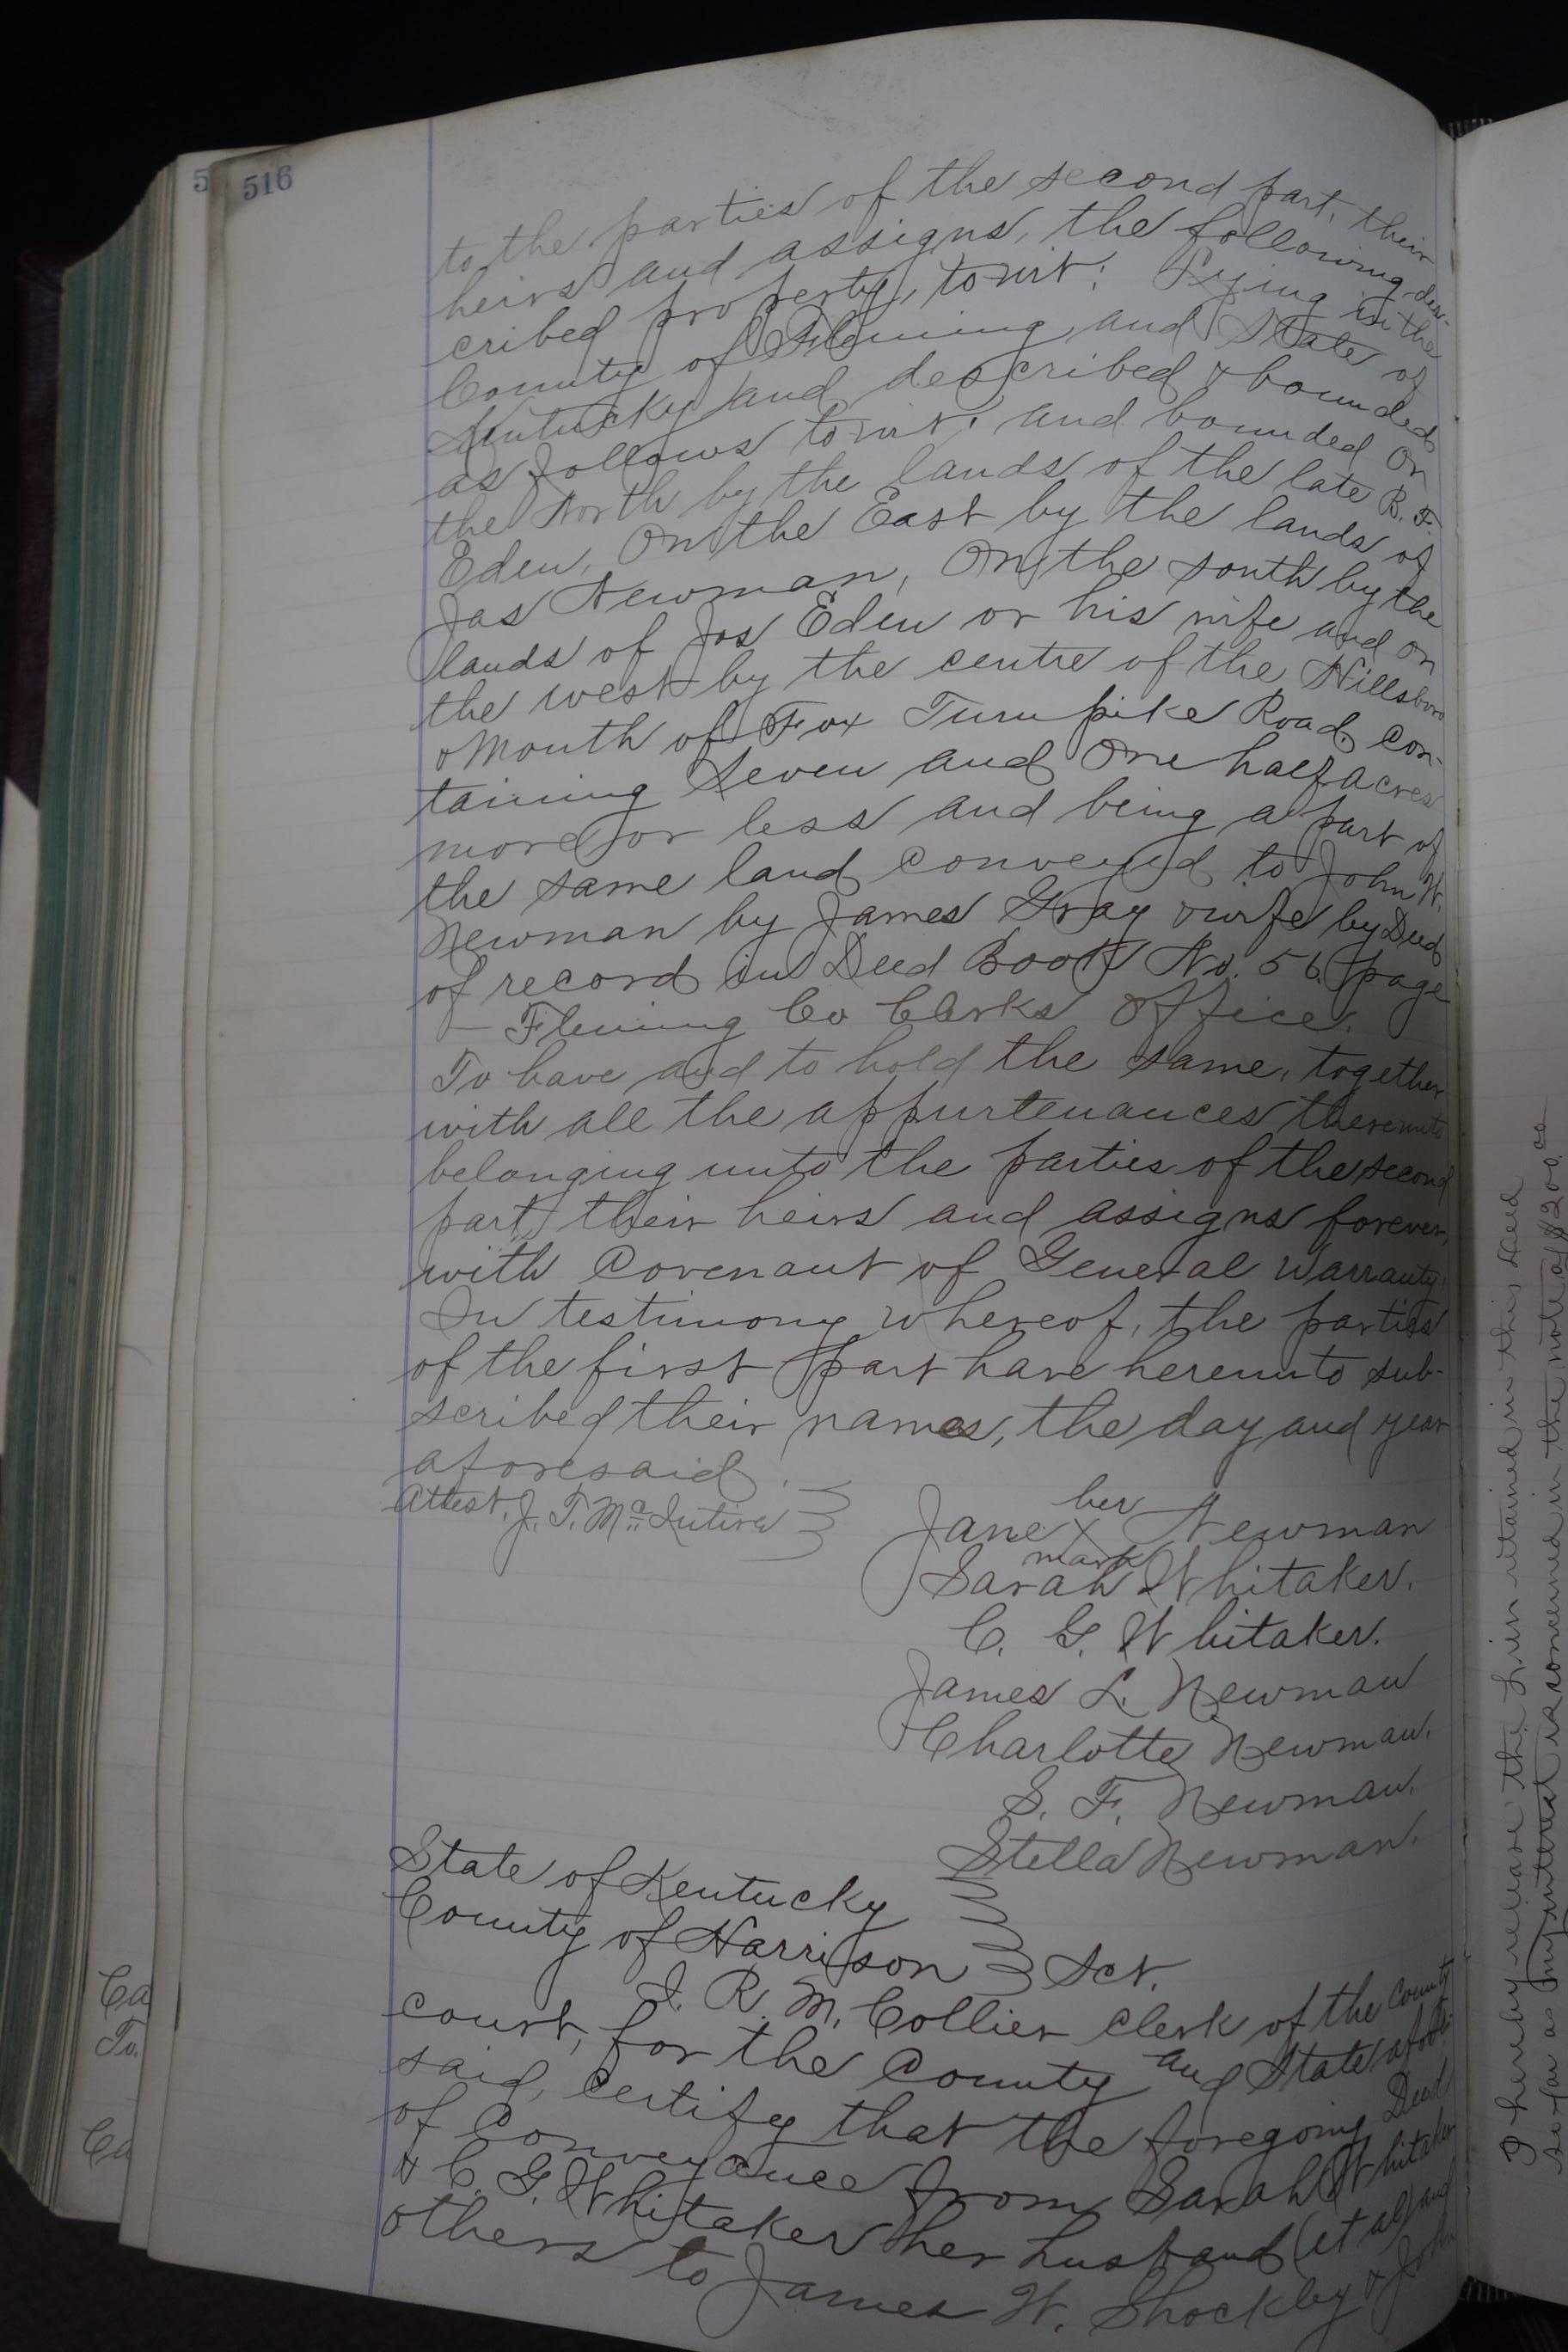 516
5
to the parties of the second part, their
heirs and assigns, the following des-
cribed property, towit: Lying in the
County of Fleming and State of
Kentucky and described & bounded
as follows towit; and bounded on
the North by the lands of the late B. F.
Eden, On the East by the lands of
Jas Newman, On the south by the
lands of Jos Eden or his wife and on
the west by the centre of the Hillsboro
& Mouth of Fox Turnpike Road, con-
taining Seven and One half acres
more or less and being a part of
the same land conveyed to John W.
Newman by James Gray & wife by Deed
of record in Deed Book No. 56 page
— Fleming Co Clerks Office.
To have and to hold the same, together
with all the appurtenances thereunto
belonging unto the parties of the second
part, their heirs and assigns forever,
with Covenant of General Warranty.
In testimony whereof, the parties
of the first part have hereunto sub-
scribed their names, the day and year
aforesaid.
Attest. J. T. Mc Intire
her
Jane X Newman
mark
Sarah Whitaker.
C. G. Whitaker.
James L. Newman
Charlotte Newman.
S. F. Newman.
Stella Newman.
State of Kentucky
County of Harrison Sct.
I. R. M. Collier Clerk of the County
court, for the County and State afore-
said, certify that the foregoing Deed
of Conveyance from Sarah Whitaker
& C. G. Whitaker her husband (et al) and
others to James W. Shockley & John
Ca
To.
Ca
I hereby release the lien retained in this deed
so far as my interest is concerned in the note of $200.00